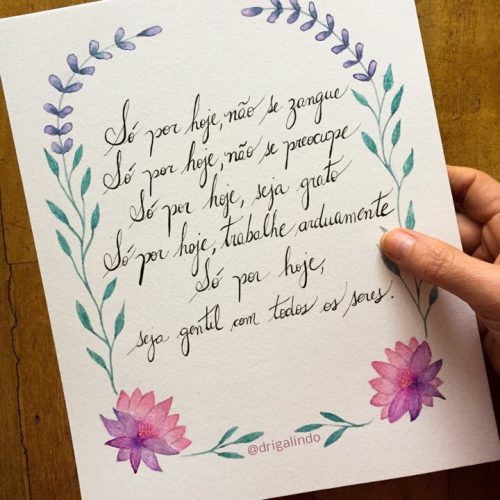 Só por hoje, não se zangue
Só por hoje, não se preocupe
Só por hoje, seja grato
Só por hoje, trabalhe arduamente
Só por hoje,
seja gentil com todos os seres.
@drigalindo